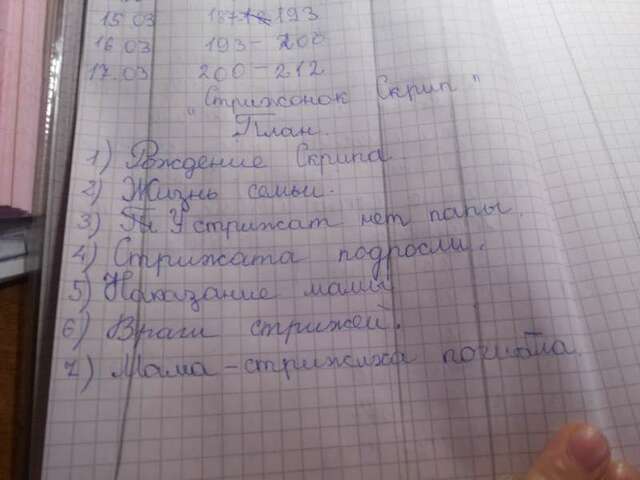 15.03 187 193
16.03 193 - 200
17.03 200 - 212
"Стрижонок Скрип"
План.
1) Рождение Скрипа.
2) Жизнь семьи.
3) У стрижат нет папы.
4) Стрижата подросли.
5) Наказание мамы.
6) Враги стрижей.
7) Мама - стрижиха погибла.